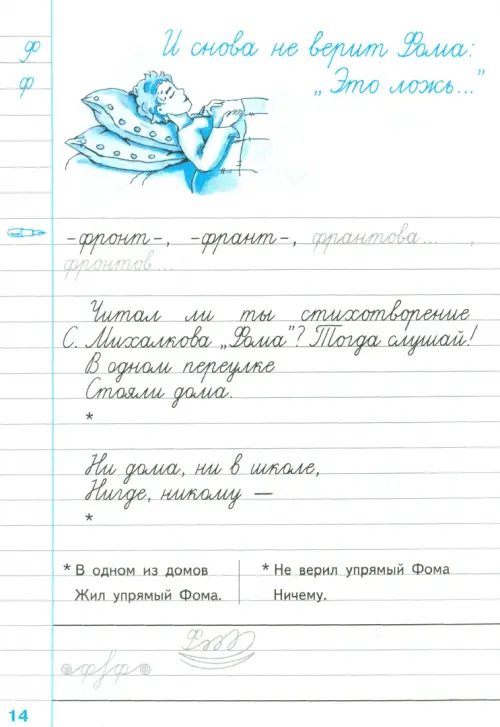 Ф
ф
И снова не верит Фома:
„Это ложь..."
-фронт-, -франт-, франтова... ,
фронтов...
Читал ли ты стихотворение
С. Михалкова „Фома"? Тогда слушай!
В одном переулке
Стояли дома.
*
Ни дома, ни в школе,
Нигде, никому —
*
* В одном из домов
Жил упрямый Фома.
* Не верил упрямый Фома
Ничему.
14